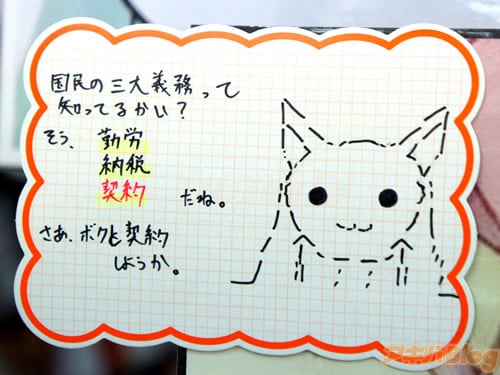 国民の三大義務って
知ってるかい？
そう、勤労
納税
契約 だね。
さあ、ボクと契約
しようか。
アキバBlog